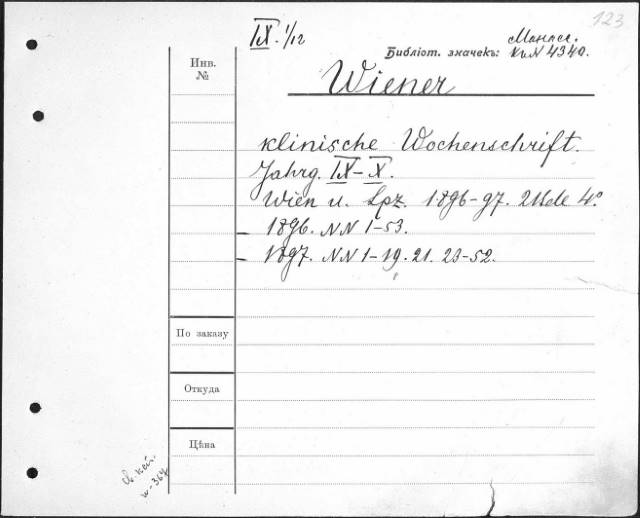 123
IX. 1/12
Инв.
№
Библіот. значекъ: К и N 4340.
Wiener
klinische Wochenschrift.
Jahrg. IX-X.
Wien u. Lpz. 1896-97. 2 Bde 4°.
1896. NN 1-53.
1897. NN 1-19. 21. 23-52.
По заказу
Откуда
Цѣна